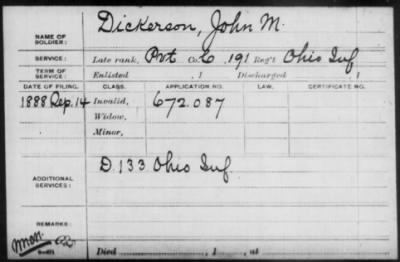 Dickerson, John M.
NAME OF SOLDIER:
SERVICE: Late rank, Pvt Co. C, 191 Reg't Ohio Inf
TERM OF SERVICE: Enlisted , 1 Discharged , 1
DATE OF FILING. CLASS. APPLICATION NO. LAW. CERTIFICATE NO.
1888 Sep. 14 Invalid, 672.087
Widow,
Minor,
ADDITIONAL SERVICES: D. 133 Ohio Inf.
REMARKS:
Died , 1 , at